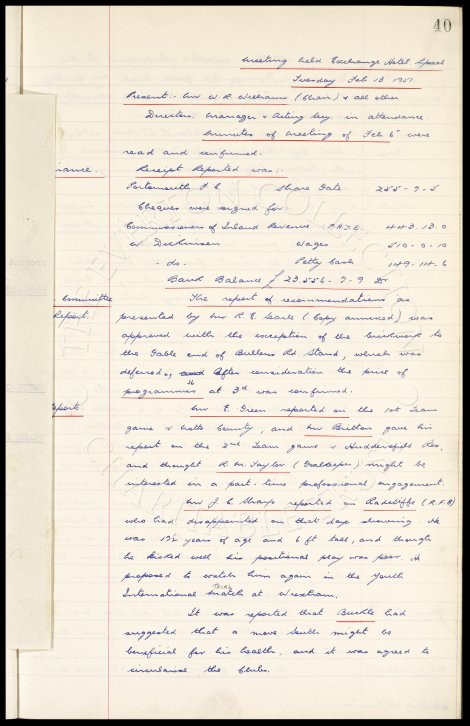 40
Meeting held Exchange Hotel L'pool
Tuesday Feb 13 1951.
Present:- Mr W. R. Williams (Chair) & all other
Directors. Manager & Acting Secy. in attendance.
Minutes of Meeting of Feb 6th were
read and confirmed.
inance. Receipt Reported was:-
Portsmouth F C Share Gate 255 - 7 - 5
Cheques were signed for:
Commissioners of Inland Revenue P.A.Y.E. 443 . 13 . 0
W Dickinson Wages 510 . 0 . 10
- do - Petty Cash 149 . 14 . 6
Bank Balance £23,556 - 7 - 9 Dr
Committee The report of recommendations as
Report. presented by Mr R. E. Searle (Copy annexed) was
approved with the exception of the brickwork to
the Gable end of Bullens Rd Stand, which was
deferred, and After consideration the price of
programmes at 3d was confirmed.
Reports Mr E. Green reported on the 1st Team
game v Notts County, and Mr Britton gave his
report on the 2nd Team game v Huddersfield Res,
and thought R. M. Taylor (Goalkeeper) might be
interested in a part-time professional engagement.
Mr J. C. Sharp reported on Radcliffe (R.F.B)
who had disappointed on that days showing. He
was 17½ years of age and 6 ft tall, and though
he kicked well his positional play was poor. He
proposed to watch him again in the Youth
International TRIAL Match at Wrexham.
It was reported that Buckle had
suggested that a move South might be
beneficial for his health, and it was agreed to
circularise the Clubs.
THE EVERTON COLLECTION
CHARITABLE TRUST